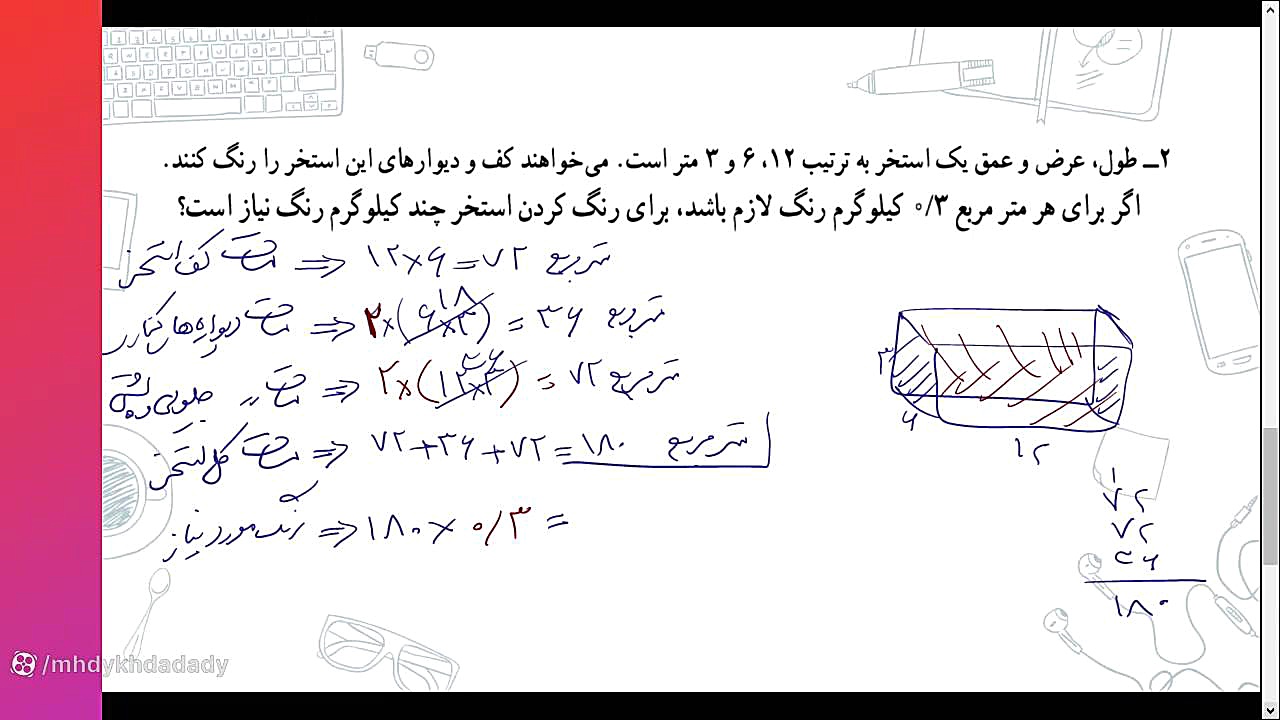 ۲ــ طول، عرض و عمق یک استخر به ترتیب ۱۲، ۶ و ۳ متر است. می‌خواهند کف و دیوارهای این استخر را رنگ کنند.
اگر برای هر متر مربع ۰/۳ کیلوگرم رنگ لازم باشد، برای رنگ کردن استخر چند کیلوگرم رنگ نیاز است؟
مساحت کف استخر ⇒ ۱۲×۶=۷۲ متر مربع
مساحت دیواره‌ها کناری ⇒ ۲×(۶×۳) = ۳۶ متر مربع
۱۸
مساحت " جلویی و پشتی ⇒ ۲×(۱۲×۳) = ۷۲ متر مربع
۳۶
مساحت کل استخر ⇒ ۷۲+۳۶+۷۲=۱۸۰ متر مربع
رنگ مورد نیاز ⇒ ۱۸۰×۰/۳ =
۳
۶
۱۲
۱
۷۲
۷۲
۳۶
۱۸۰
/mhdykhdadady